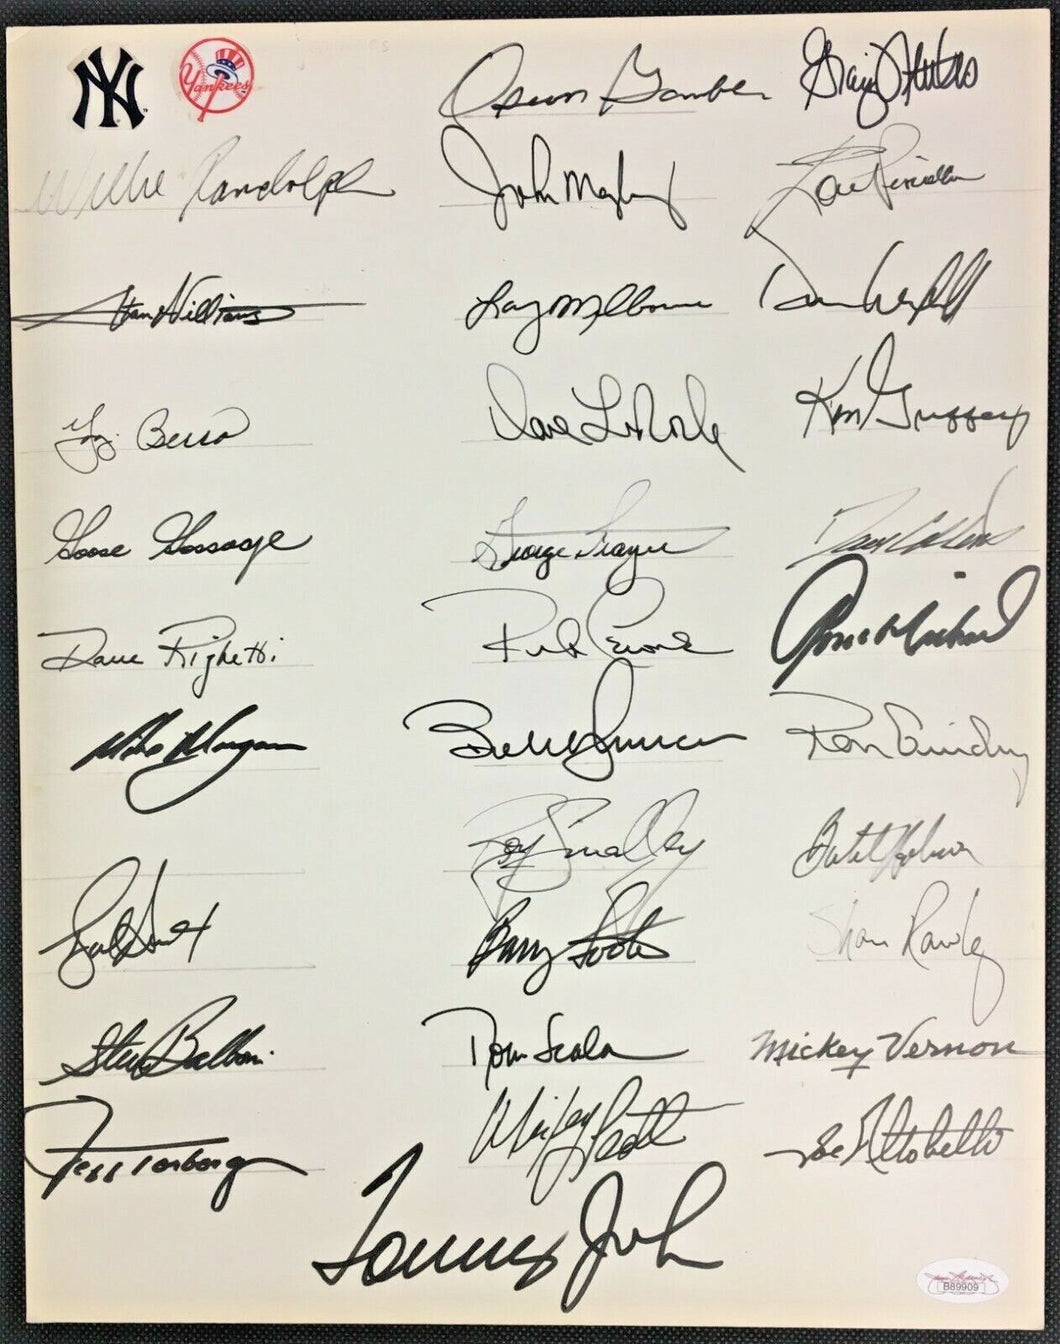 NY Yankees Oscar Gamble Graig Nettles
Willie Randolph John Mayberry Lou Piniella
Stan Williams Larry Milbourne Dave Winfield
Yogi Berra Dave LaRoche Ken Griffey
Goose Gossage George Frazier Dave Collins
Dave Righetti Rick Cerone Gene Michael
Mike Morgan Bobby Murcer Ron Guidry
Roy Smalley Butch Hobson
Barry Foote Shane Rawley
Steve Balboni Tom Mickey Vernon
Jeff Torborg Mickey Scott Joe Altobelli
Tommy John
B89909